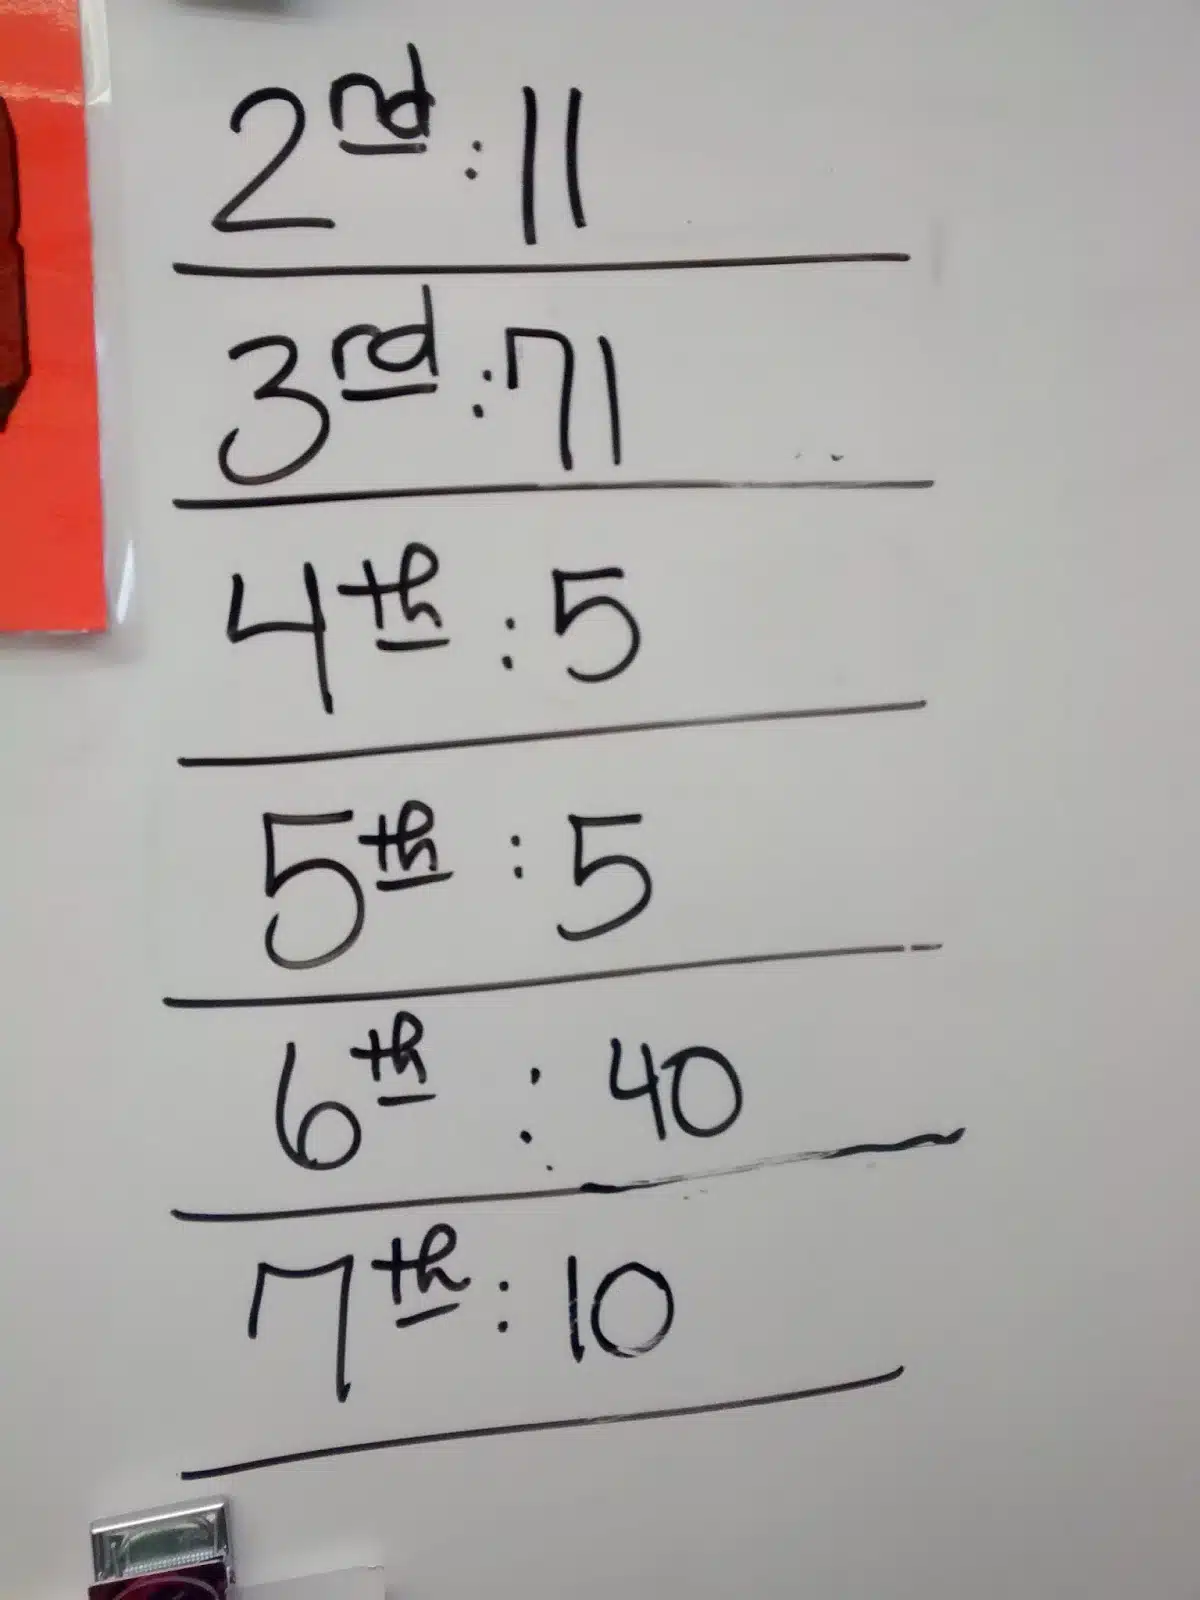 2nd : 11
3rd : 71
4th : 5
5th : 5
6th : 40
7th : 10